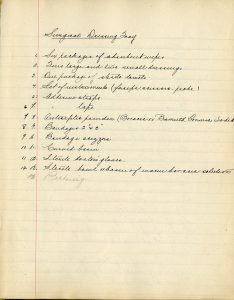 Surgical Dressing Tray
1. Six packages of absorbent wipes
2. Two large and two small dressings
3. One package of sterile towels
4. Set of instruments (forceps, scissors, probe)
5. Adhesive straps
6. " tape
7. Antiseptic powders (Boracic or Bismuth
8. Bandages 2" & 3"
9. Bandage scissors
10. Curved basin
11. Sterile doctors gloves
12. Sterile bowl of warm boracic solution